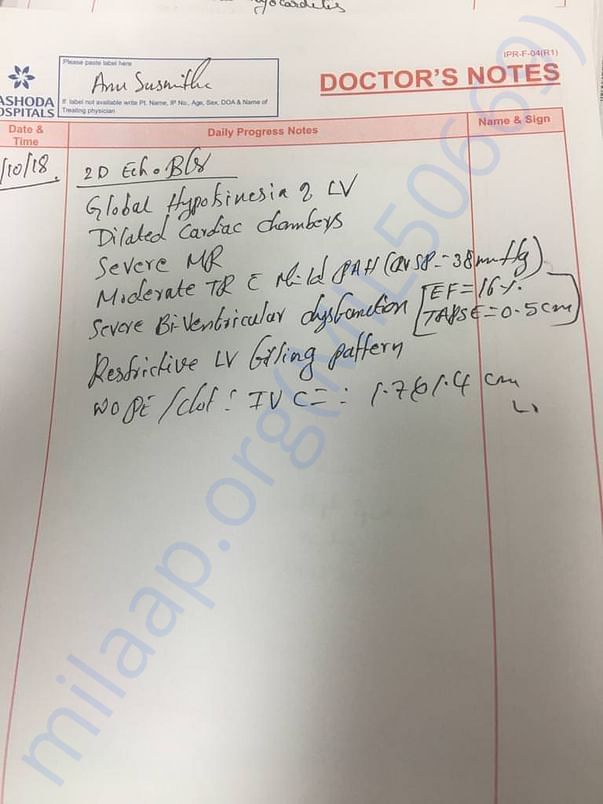 IPR-F-04(R1)
Please paste label here
Anu Susmitha
If label not available write Pt. Name, IP No., Age, Sex, DOA & Name of
Treating physician
ASHODA
OSPITALS
DOCTOR'S NOTES
Date &
Time
Daily Progress Notes
Name & Sign
/10/18.
2D Echo B/S
Global Hypokinesia of LV
Dilated Cardiac chambers
Severe MR
Moderate TR c Mild PAH (RVSP = 38 mmHg)
Severe Bi-Ventricular dysfunction [EF = 16%.
TAPSE = 0.5 cm]
Restrictive LV filling pattern
NO PE / clot : IVC = : 1.7 cm
milaap.org